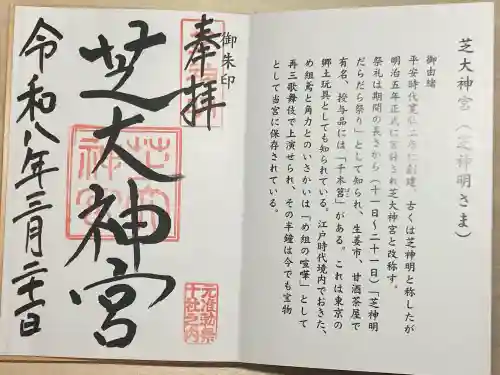 芝大神宮(芝神明さま)
御由緒
平安時代寛弘二年に創建、古くは芝神明と称したが
明治五年正式に芝大神宮と改称す。
祭礼は期間の長さから(十一日~二十一日)「芝神明
だらだら祭り」として知られ、生姜市、甘酒茶屋で
有名、授与品には「千木筥」がある。これは東京の
郷土玩具としても知られている。江戸時代境内でおきた、
め組鳶と角力とのいさかいは「め組の喧嘩」として
再三歌舞伎で上演せられ、その半鐘は今でも宝物
として当宮に保存されている。
御朱印
奉拝
芝大神宮
令和八年三月二十一日
元准勅祭
十社之内